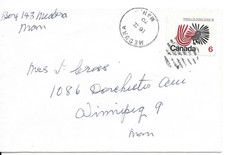 Box 143 Medora
Man
MEDORA
MAN
Canada 6
Mrs J Cross
1086 Dorchester Ave
Winnipeg 9
Man